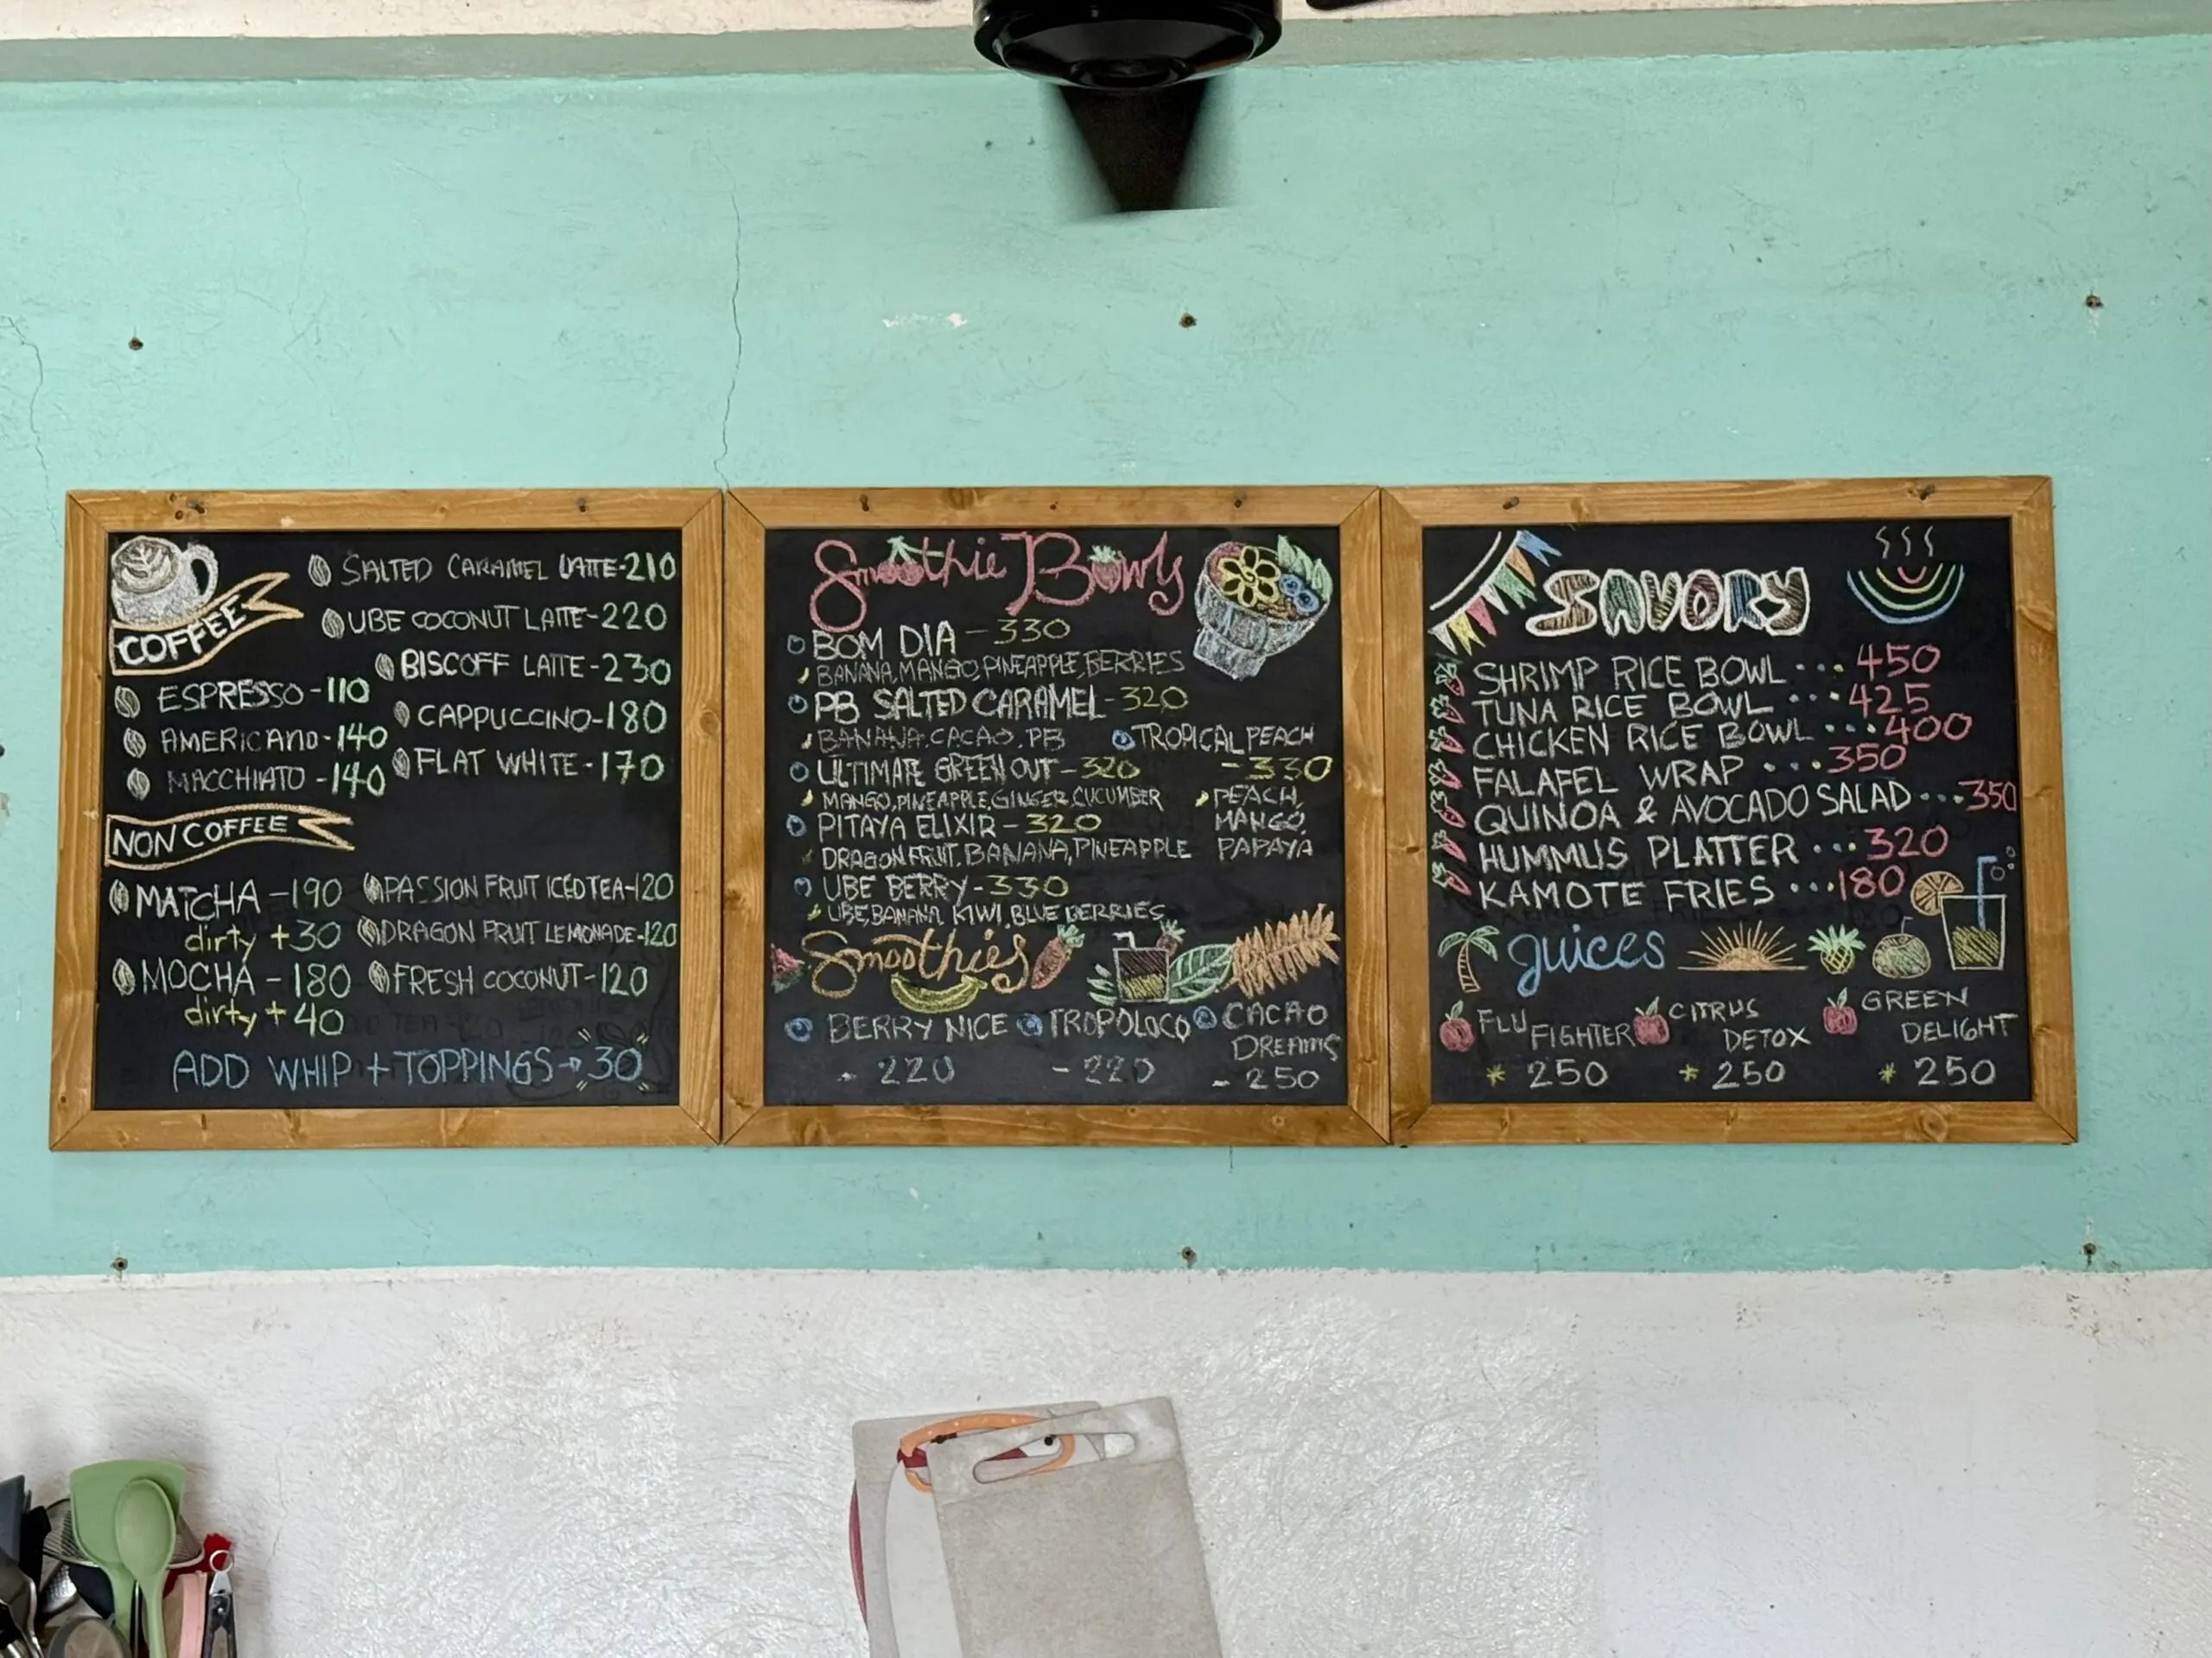 COFFEE
ESPRESSO - 110
AMERICANO - 140
MACCHIATO - 140
SALTED CARAMEL LATTE - 210
UBE COCONUT LATTE - 220
BISCOFF LATTE - 230
CAPPUCCINO - 180
FLAT WHITE - 170
NON COFFEE
MATCHA - 190
dirty + 30
MOCHA - 180
dirty + 40
PASSION FRUIT ICED TEA - 120
DRAGON FRUIT LEMONADE - 120
FRESH COCONUT - 120
ADD WHIP + TOPPINGS → 30
Smoothie Bowls
BOM DIA - 330
BANANA, MANGO, PINEAPPLE, BERRIES
PB SALTED CARAMEL - 320
BANANA. CACAO. PB
ULTIMATE GREEN OUT - 320
MANGO, PINEAPPLE, GINGER, CUCUMBER
PITAYA ELIXIR - 320
DRAGON FRUIT, BANANA, PINEAPPLE
UBE BERRY - 330
UBE, BANANA, KIWI, BLUE BERRIES
TROPICAL PEACH
- 330
PEACH,
MANGO,
PAPAYA
Smoothies
BERRY NICE
- 220
TROPOLOCO
- 220
CACAO
DREAMS
- 250
SAVORY
SHRIMP RICE BOWL ... 450
TUNA RICE BOWL ... 425
CHICKEN RICE BOWL ... 400
FALAFEL WRAP ... 350
QUINOA & AVOCADO SALAD ... 350
HUMMUS PLATTER ... 320
KAMOTE FRIES ... 180
Juices
FLU
FIGHTER
* 250
CITRUS
DETOX
* 250
GREEN
DELIGHT
* 250